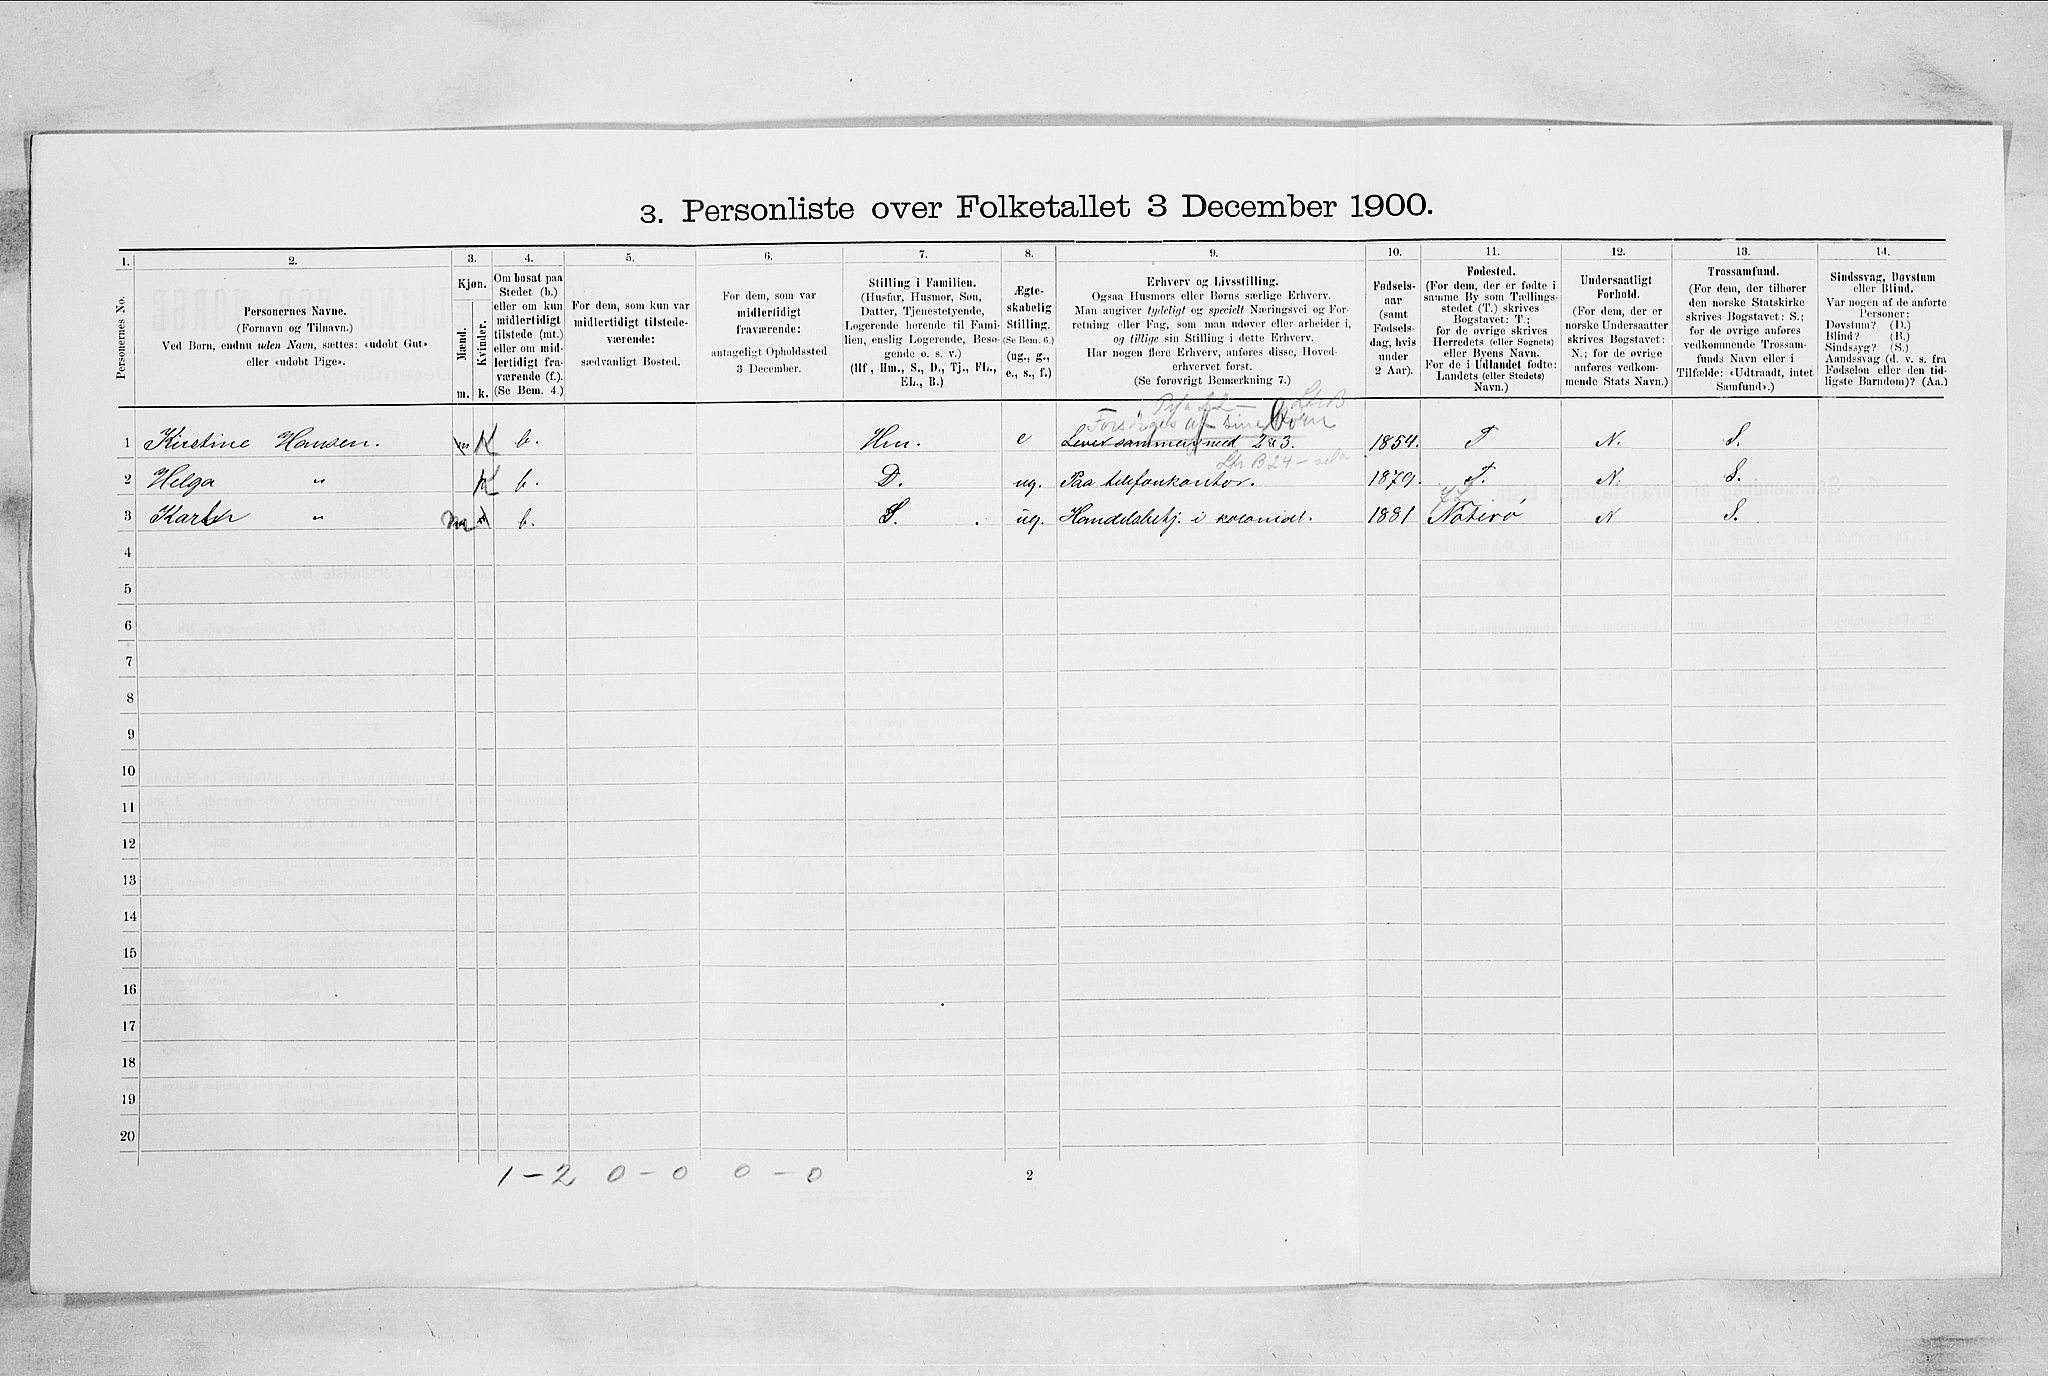 3. Personliste over Folketallet 3 December 1900.
1. 2. 3. 4. 5. 6. 7. 8. 9. 10. 11. 12. 13. 14.
Personernes No.
Personernes Navne.
(Fornavn og Tilnavn.)
Ved Børn, endnu uden Navn, sættes: «udøbt Gut»
eller «udøbt Pige».
Kjøn.
Mænd.
Kvinder.
m. k.
Om bosat paa
Stedet (b.)
eller om kun
midlertidigt
tilstede (mt.)
eller om mid-
lertidigt fra-
værende (f.).
(Se Bem. 4.)
For dem, som kun var
midlertidigt tilstede-
værende:
sædvanligt Bosted.
For dem, som var
midlertidigt
fraværende:
antageligt Opholdssted
3 December.
Stilling i Familien.
(Husfar, Husmor, Søn,
Datter, Tjenestetyende,
Logerende hørende til Fami-
lien, enslig Logerende, Besø-
gende o. s. v.)
(Hf., Hm., S., D., Tj., FL.,
EL., B.)
Ægte-
skabelig
Stilling.
(Se Bem. 6.)
(ug., g.,
e., s., f.)
Erhverv og Livsstilling.
Ogsaa Husmors eller Børns særlige Erhverv.
Man angiver tydeligt og specielt Næringsvei og For-
retning eller Fag, som man udøver eller arbeider i,
og tillige sin Stilling i dette Erhverv.
Har nogen flere Erhverv, anføres disse, Hoved-
erhvervet først.
(Se forøvrigt Bemærkning 7.)
Fødsels-
aar
(samt
Fødsels-
dag, hvis
under
2 Aar).
Fødested.
(For dem, der er fødte i
samme By som Tællings-
stedet (T.) skrives
Bogstavet: T.;
for de øvrige skrives
Herredets (eller Sognets)
eller Byens Navn.
For de i Udlandet fødte:
Landets (eller Stedets)
Navn.)
Undersaatligt
Forhold.
(For dem, der er
norske Undersaatter
skrives Bogstavet:
N.; for de øvrige
anføres vedkom-
mende Stats Navn.)
Trossamfund.
(For dem, der tilhører
den norske Statskirke
skrives Bogstavet: S.;
for de øvrige anføres
vedkommende Trossam-
funds Navn eller i
Tilfælde: «Udtraadt, intet
Samfund».)
Sindssvag, Døvstum
eller Blind.
Var nogen af de anførte
Personer:
Døvstum? (D.)
Blind? (B.)
Sindssyg? (S.)
Aandssvag (d. v. s. fra
Fødselen eller den tid-
ligste Barndom)? (Aa.)
Forsørges af sine Børn
1 Kirstine Hansen. m K b. Hm. e Lever sammen med 2 & 3. 1854. T N. S.
Ltr B 24
2 Helga " K b. D. ug. Paa telefonkontor. 1879. T. N. S.
3 " m b. S. ug. Handelsbetj. i kolonial. 1881 Nøterø N S.
4
5
6
7
8
9
10
11
12
13
14
15
16
17
18
19
20
1 - 2 0 - 0 0 - 0
2